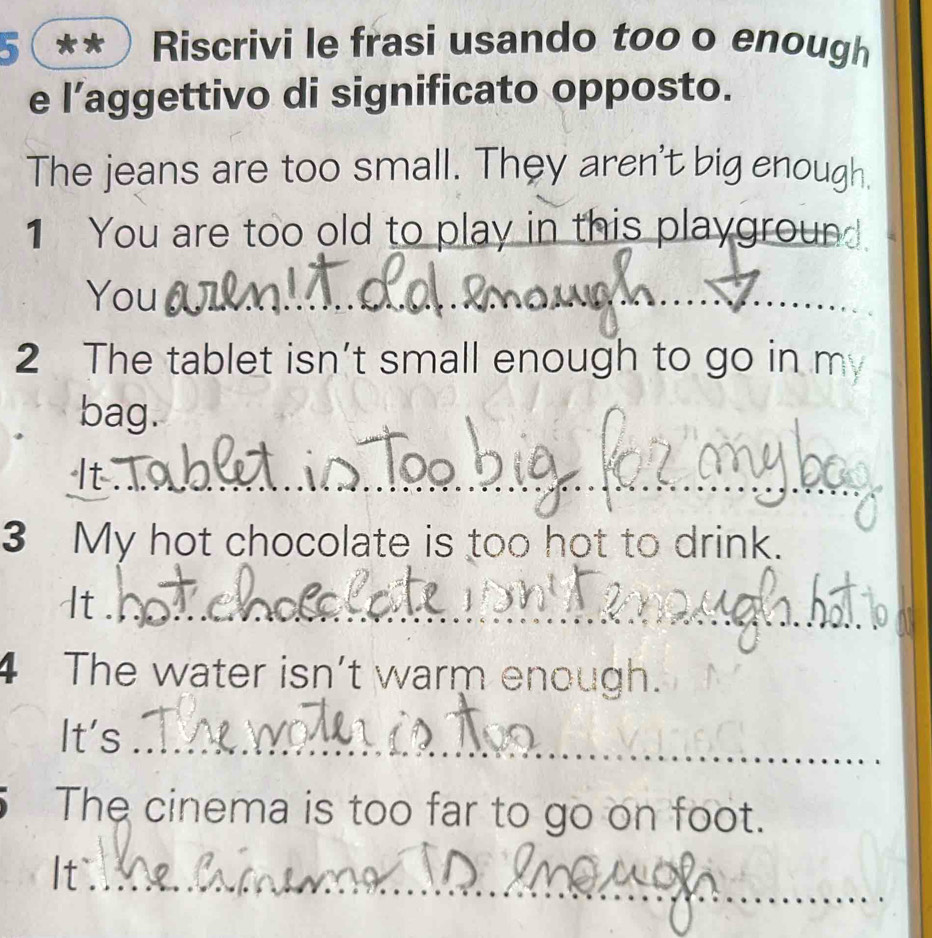 5 ** Riscrivi le frasi usando too o enough
e l'aggettivo di significato opposto.
The jeans are too small. They aren't big enough.
1 You are too old to play in this playground.
You aren't old enough
2 The tablet isn't small enough to go in my
bag.
It Tablet is Too big for my bag
3 My hot chocolate is too hot to drink.
It hot choclate isn't enough hot to
4 The water isn't warm enough.
It's The water is too
5 The cinema is too far to go on foot.
It the cinema is enough